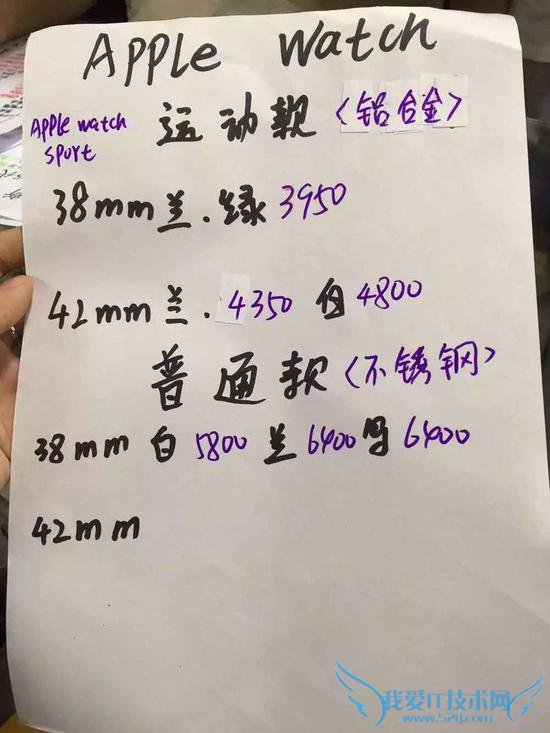 APPle Watch
Apple watch
sport
运动款〈铝合金〉
38mm 兰.绿 3950
42mm 兰. 4350 白 4800
普通款〈不锈钢〉
38mm 白 5800 兰 6400 6400
42mm
我爱IT技术网
www.52ij.com